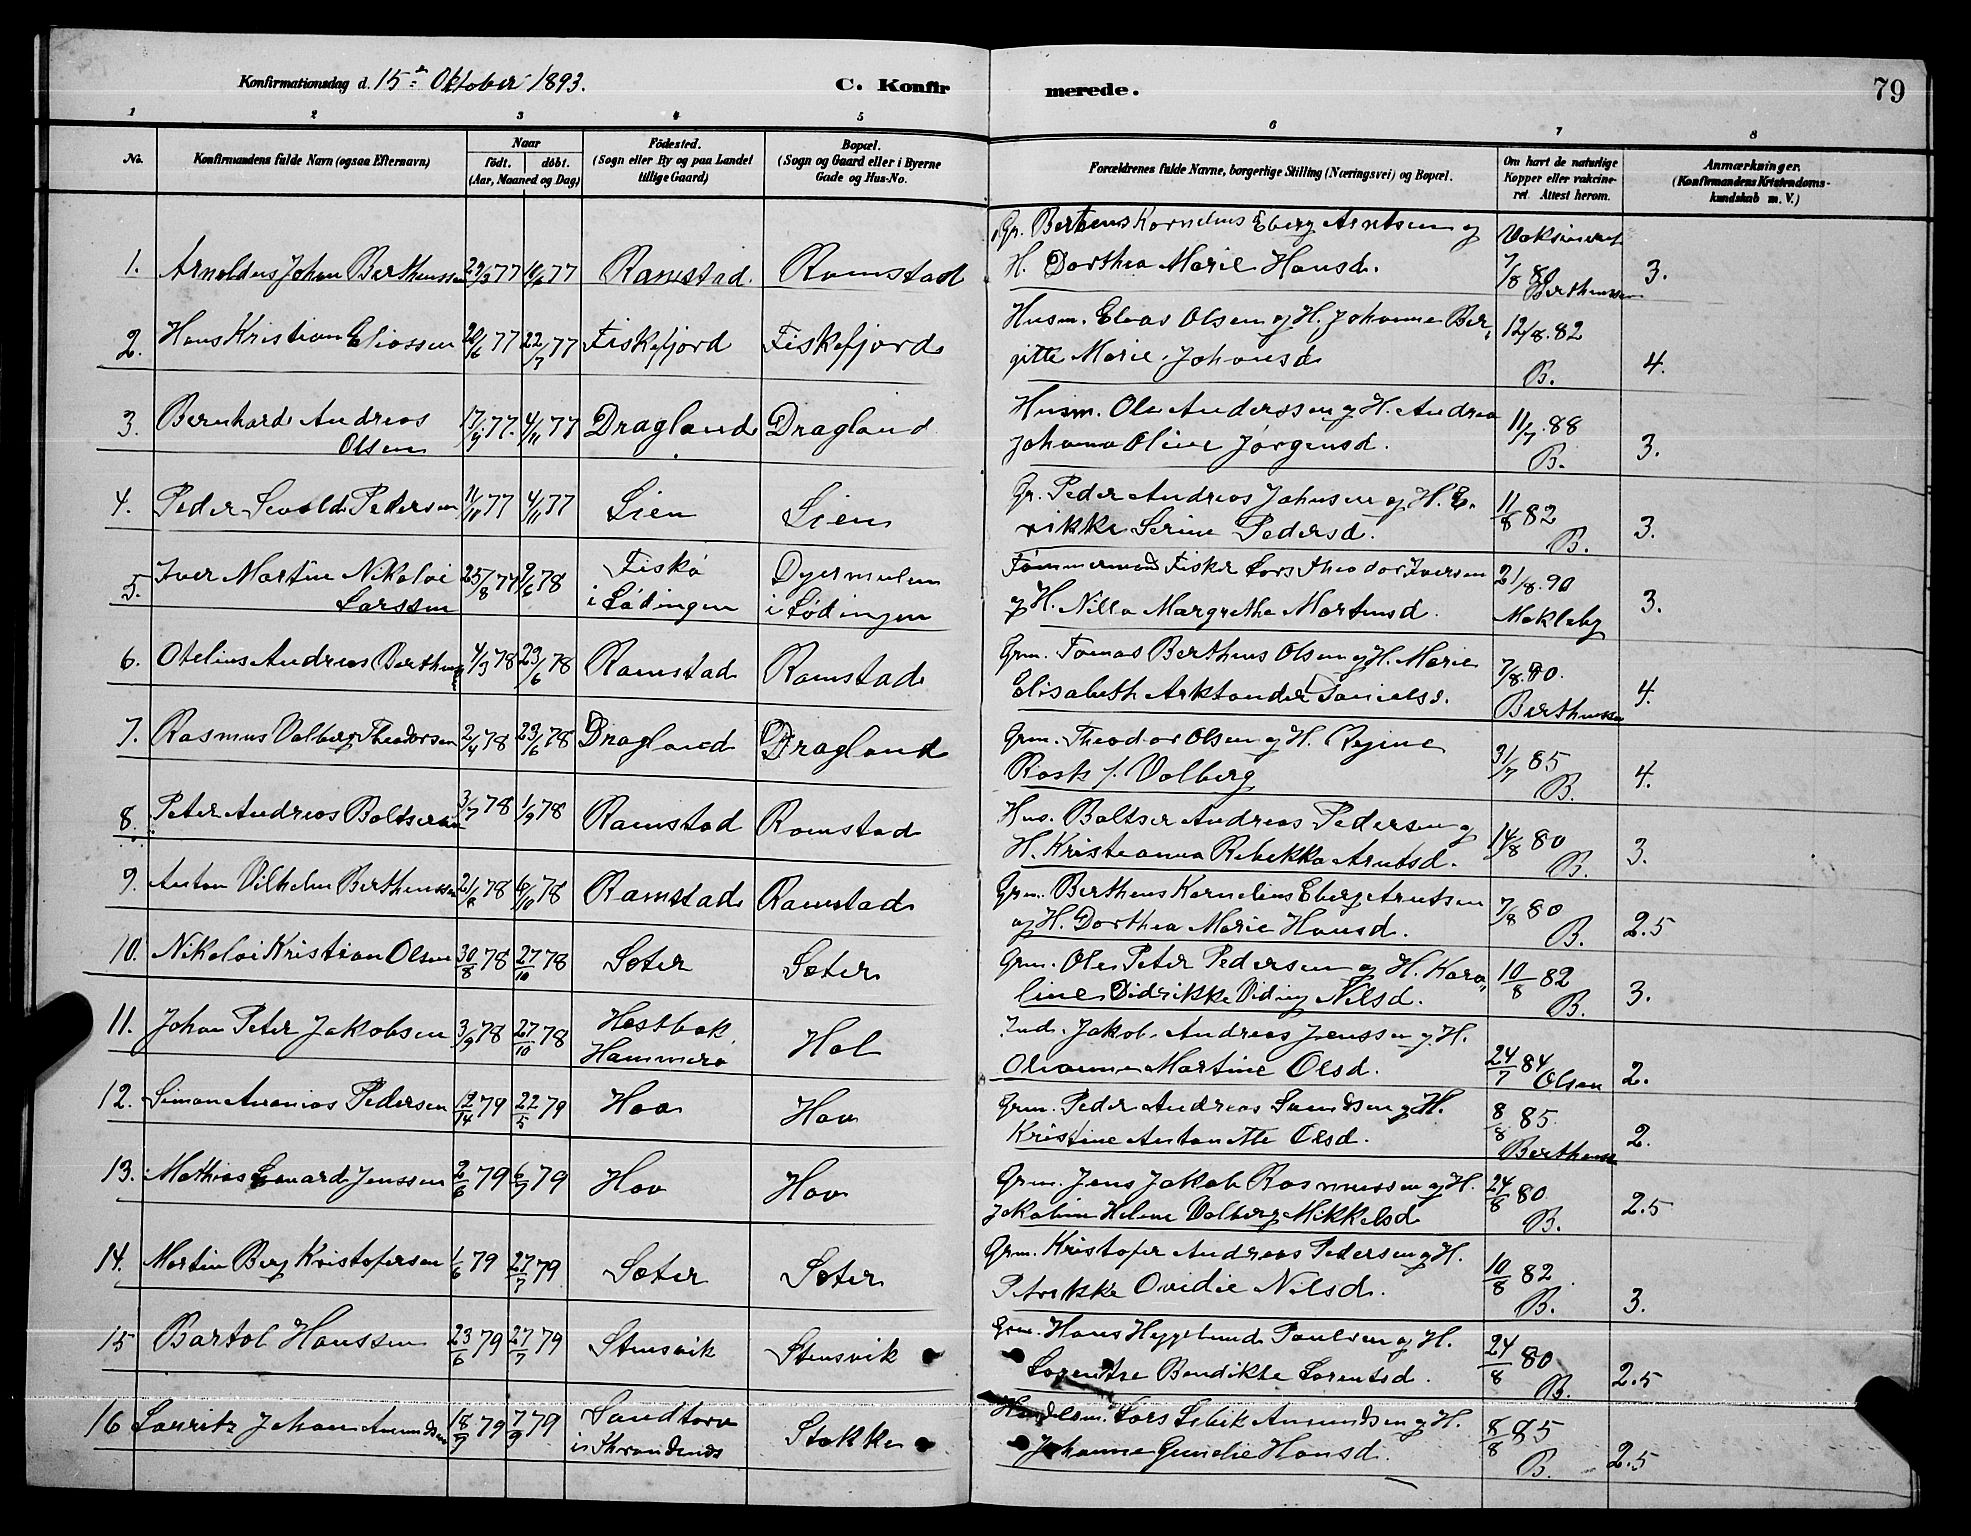 Konfirmationsdag d. 15de Oktober 1893.
C. Konfirmerede.
79
1 2 3 4 5 6 7 8
No.
Konfirmandens fulde Navn (ogsaa Efternavn)
Naar
födt. döbt.
(Aar, Maaned og Dag)
Födested.
(Sogn eller By og paa Landet
tillige Gaard)
Bopæl.
(Sogn og Gaard eller i Byerne
Gade og Hus-No.
Forældrenes fulde Navne, borgerlige Stilling (Næringsvei) og Bopæl.
Om havt de naturlige
Kopper eller vakcine-
ret. Attest herom.
Anmærkninger.
(Konfirmandens Kristendoms-
kundskab m. V.)
1. Arnoldus Johan Berthenssen 77 77 Ramstad Ramstad
Gr. Berthens Kornelius Eberg Arntsen og
H. Dorthea Marie Hansd.
Vaksineret
7/8 80
Berthenssen
3.
2. Hans Kristian Eliassen 20/6 77 22/7 77 Fiskefjord Fiskefjord
Husm. Elias Olsen og H. Johanna Ber-
gitte Marie Johansd.
12/8 82
B.
4.
3. Bernhard Andreas
Olsen
17/9 77. 4/11 77 Dragland Dragland
Husm. Ole Anderssen og H. Andrea
Johanna Oline Jørgensd.
11/7 88
B.
3.
4. Peder Sevald Pedersen 11/10 77 4/11 77 Lien Lien
Gr. Peder Andreas Johnsen og H. E-
rikke Serine Pedersd.
11/8 82
B.
3.
5. Iver Martin Nikolai
Larssen
25/8 77 9/6 78
Fiskø
i Lødingen
i Lødingen
Tømmermand Fisker Lars Theodor Iversen
og H. Nilla Margrethe Martinsd.
21/8 90
Mekleby
3.
6. Otelius Andreas 4/3 78 23/6 78 Ramstad Ramstad
Grm. Tomas Berthens Olsen og H. Marie
Elisabeth Arktander Danielsd.
7/8 80.
Berthenssen
4.
7. Rasmus Volberg Theodorsen 2/4 78 23/6 78 Dragland Dragland
Grm. Theodor Olsen og H. Regine
Rask f. Volberg
31/7 85
B.
4.
8. Peter Andreas Baltsersen 3/7 78 1/9 78 Ramstad Ramstad
Hus. Baltser Andreas Pedersen og
H. Kristianna Rebekka Arntsd.
14/8 80
B.
3.
9. Anton Vilhelm Berthenssen 21/8 78 78 Ramstad Ramstad
Grm. Berthens Kornelius Eberg Arntsen
og H. Dorthea Marie Hansd.
7/8 80
B.
2.5
10. Nikolai Kristian Olsen 30/8 78 27/10 78 Sæter Sæter
Grm. Ole Peter Pedersen og H. Karo-
line Didrikke Viding Nilsd.
10/8 82
B.
3.
11. Johan Peter Jakobsen 3/9 78 27/10 78
Hestbak
Hammerø
Hol
Ind. Jakob Andreas Jenssen og H.
Oleanna Martine Olsd.
24/7 84
Olsen
2.
12. Simon Ananias Pedersen 12/14 79 22/5 79 Hov Hov
Grm. Peder Andreas og H.
Kristine Antonette Olsd.
8/8 85.
Berthenssen
2.
13. Mathias Lenard Jenssen 2/6 79 6/7 79 Hov Hov
Grm. Jens Jakob Rasmussen og H.
Jakobine Helene Volberg Mikkelsd
24/8 80
B.
2.5
14. Martin Berg Kristofersen 1/6 79 27/7 79 Sæter Sæter
Grm. Kristofer Andreas Pedersen og H.
Petrikke Ovidie Nilsd.
10/8 82
B.
3.
15 Bartol Hanssen 23/6 79 27/7 79 Stensvik Stensvik
Grm. Hans Heggelund Paulsen og H.
Lorentse Bendikte Lorentsd.
24/8 80
B.
2.5
16 Lauritz Johan Amundsen 18/7 79 7/9 79
Sandtorv
i Throndenæs
Stokke
Handlsm. Lars Amundsen og H.
Johanna Hansd.
8/8 85
B.
2.5